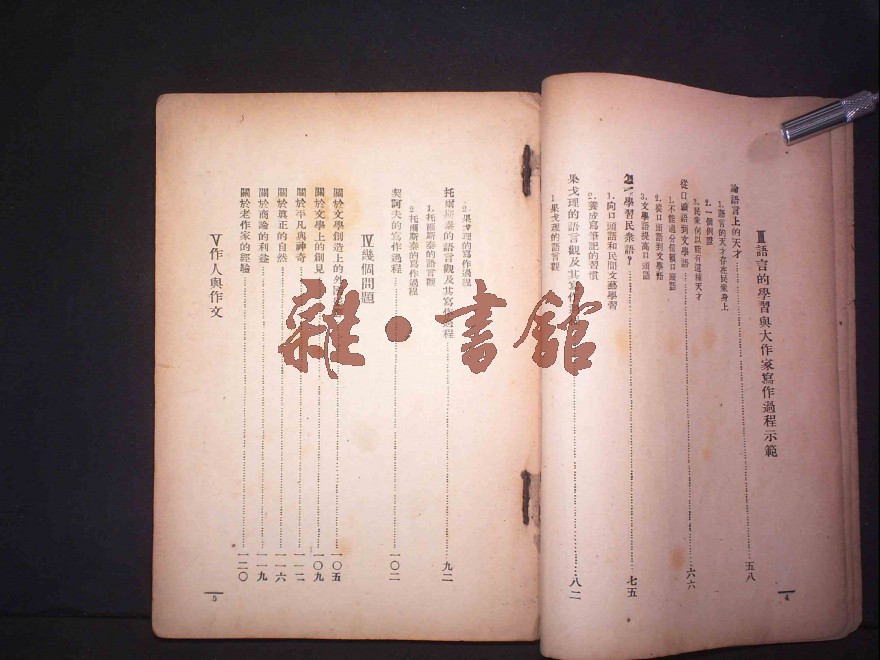 Ⅲ語言的學習與大作家寫作過程示範
論語言上的天才……五八
1.語言的天才存在民衆身上
2.一個例證
3.民衆何以能有這種天才
從口頭語到文學語……六六
1.不能過分信賴口頭語
2.從口頭語到文學語
3.文學語提高口頭語
學習民衆語?……七五
1.向口頭語和民間文藝學習
2.養成寫筆記的習慣
果戈理的語言觀及其寫作……八二
1.果戈理的語言觀
4
2.果戈理的寫作過程
托爾斯泰的語言觀及其寫作過程……九二
1.托爾斯泰的語言觀
2.托爾斯泰的寫作過程
契訶夫的寫作過程……一〇二
Ⅳ幾個問題
關於文學創造上的外……一〇五
關於文學上的創見……一〇九
關於平凡與神奇……一一二
關於眞正的自然……一一六
關於商論的利益……一一九
關於老作家的經驗……一二〇
Ⅴ作人與作文
5
雜·書館